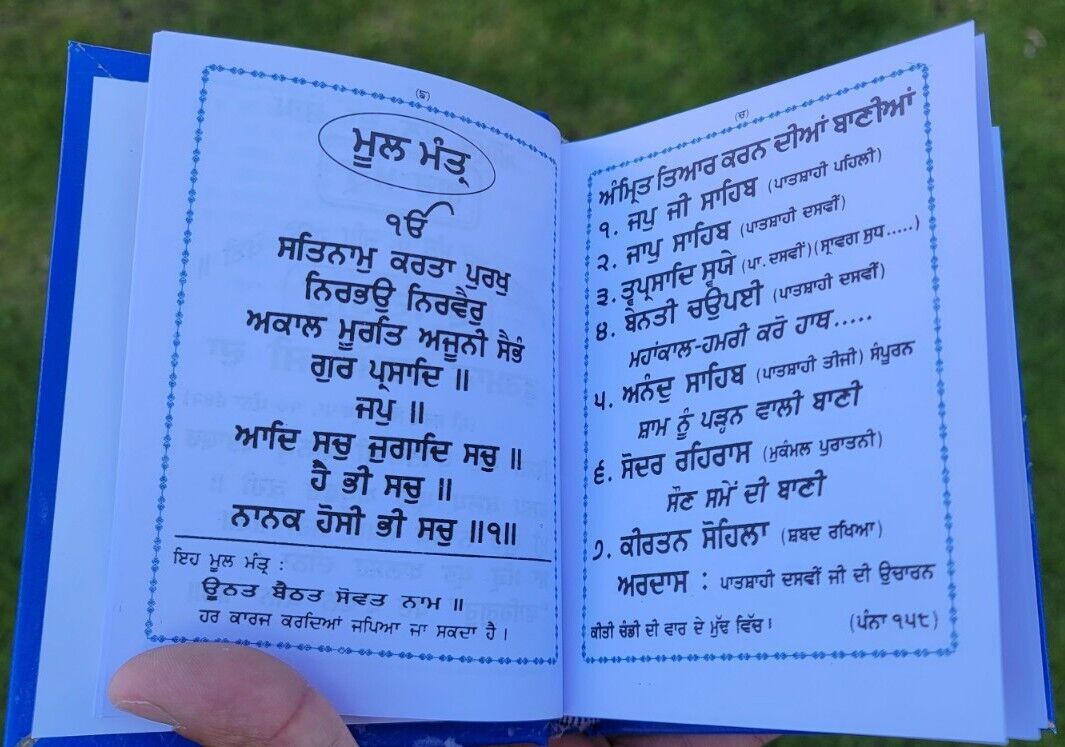 (ੳ)
ਮੂਲ ਮੰਤ੍ਰ
ੴ
ਸਤਿਨਾਮੁ ਕਰਤਾ ਪੁਰਖੁ
ਨਿਰਭਉ ਨਿਰਵੈਰੁ
ਅਕਾਲ ਮੂਰਤਿ ਅਜੂਨੀ ਸੈਭੰ
ਗੁਰ ਪ੍ਰਸਾਦਿ ॥
ਜਪੁ ॥
ਆਦਿ ਸਚੁ ਜੁਗਾਦਿ ਸਚੁ ॥
ਹੈ ਭੀ ਸਚੁ ॥
ਨਾਨਕ ਹੋਸੀ ਭੀ ਸਚੁ ॥੧॥
ਇਹ ਮੂਲ ਮੰਤ੍ਰ :
ਊਠਤ ਬੈਠਤ ਸੋਵਤ ਨਾਮ ॥
ਹਰ ਕਾਰਜ ਕਰਦਿਆਂ ਜਪਿਆ ਜਾ ਸਕਦਾ ਹੈ।
(ਚ)
ਅੰਮ੍ਰਿਤ ਤਿਆਰ ਕਰਨ ਦੀਆਂ ਬਾਣੀਆਂ
੧. ਜਪੁ ਜੀ ਸਾਹਿਬ (ਪਾਤਸ਼ਾਹੀ ਪਹਿਲੀ)
੨. ਜਾਪੁ ਸਾਹਿਬ (ਪਾਤਸ਼ਾਹੀ ਦਸਵੀਂ)
੩. ਤ੍ਵਪ੍ਰਸਾਦਿ ਸ੍ਵਯੇ (ਪਾ.ਦਸਵੀਂ)(ਸ੍ਰਾਵਗ ਸੁਧ.....)
੪. ਬੇਨਤੀ ਚਉਪਈ (ਪਾਤਸ਼ਾਹੀ ਦਸਵੀਂ)
ਮਹਾਂਕਾਲ-ਹਮਰੀ ਕਰੋ ਹਾਥ.....
੫. ਅਨੰਦੁ ਸਾਹਿਬ (ਪਾਤਸ਼ਾਹੀ ਤੀਜੀ) ਸੰਪੂਰਨ
ਸ਼ਾਮ ਨੂੰ ਪੜ੍ਹਨ ਵਾਲੀ ਬਾਣੀ
੬. ਸੋਦਰ ਰਹਿਰਾਸ (ਮੁਕੰਮਲ ਪੁਰਾਤਨੀ)
ਸੌਣ ਸਮੇਂ ਦੀ ਬਾਣੀ
੭. ਕੀਰਤਨ ਸੋਹਿਲਾ (ਸ਼ਬਦ ਰਖਿਆ)
ਅਰਦਾਸ : ਪਾਤਸ਼ਾਹੀ ਦਸਵੀਂ ਜੀ ਦੀ ਉਚਾਰਨ
ਕੀਤੀ ਚੰਡੀ ਦੀ ਵਾਰ ਦੇ ਮੁੱਢ ਵਿੱਚ। (ਪੰਨਾ ੧੫੮)